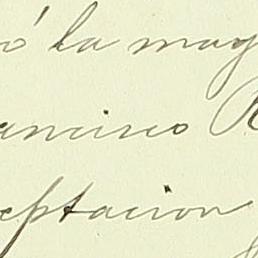 ó la may
ancisco R
eptacion